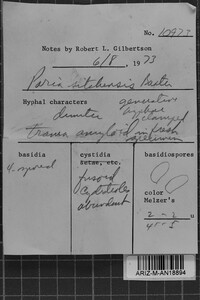 No. 10973
Notes by Robert L. Gilbertson
6/8, 1973
Poria sitchensis Baxter
Hyphal characters
generative
hyphae
dimitic
clamped
trama amyloid in fresh
specimen
basidia
cystidia
setae, etc.
basidiospores
4-spored
fusoid
cystidioles
abundant
color
Melzer's
2 - u
4 - 5
ARIZ-M-AN18894